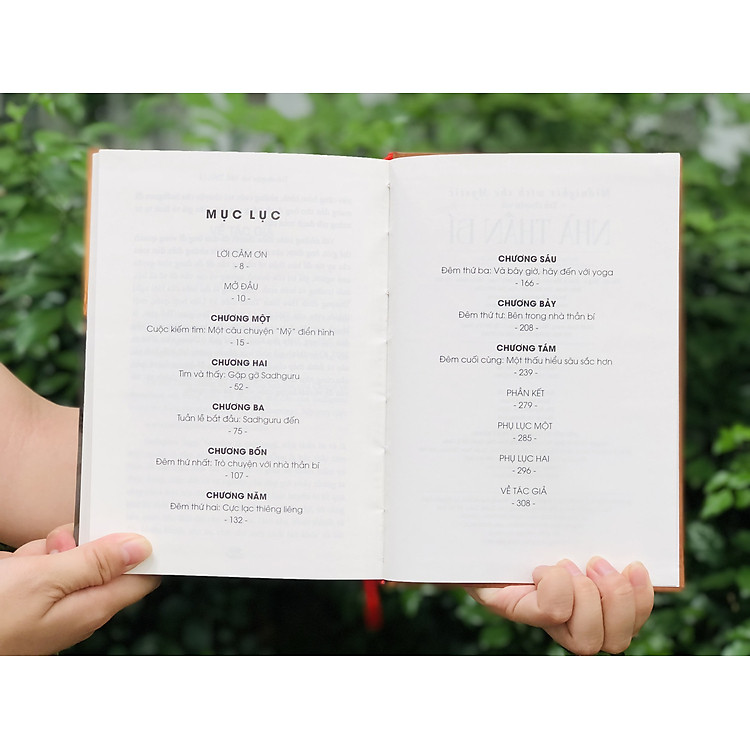 MỤC LỤC
LỜI CẢM ƠN
- 8 -
MỞ ĐẦU
- 10 -
CHƯƠNG MỘT
Cuộc kiếm tìm: Một câu chuyện "Mỹ" điển hình
- 15 -
CHƯƠNG HAI
Tìm và thấy: Gặp gỡ Sadhguru
- 52 -
CHƯƠNG BA
Tuần lễ bắt đầu: Sadhguru đến
- 75 -
CHƯƠNG BỐN
Đêm thứ nhất: Trò chuyện với nhà thần bí
- 107 -
CHƯƠNG NĂM
Đêm thứ hai: Cực lạc thiêng liêng
- 132 -
NHÀ THẦN BÍ
CHƯƠNG SÁU
Đêm thứ ba: Và bây giờ, hãy đến với yoga
- 166 -
CHƯƠNG BẢY
Đêm thứ tư: Bên trong nhà thần bí
- 208 -
CHƯƠNG TÁM
Đêm cuối cùng: Một thấu hiểu sâu sắc hơn
- 239 -
PHẦN KẾT
- 279 -
PHỤ LỤC MỘT
- 285 -
PHỤ LỤC HAI
- 296 -
VỀ TÁC GIẢ
- 308 -